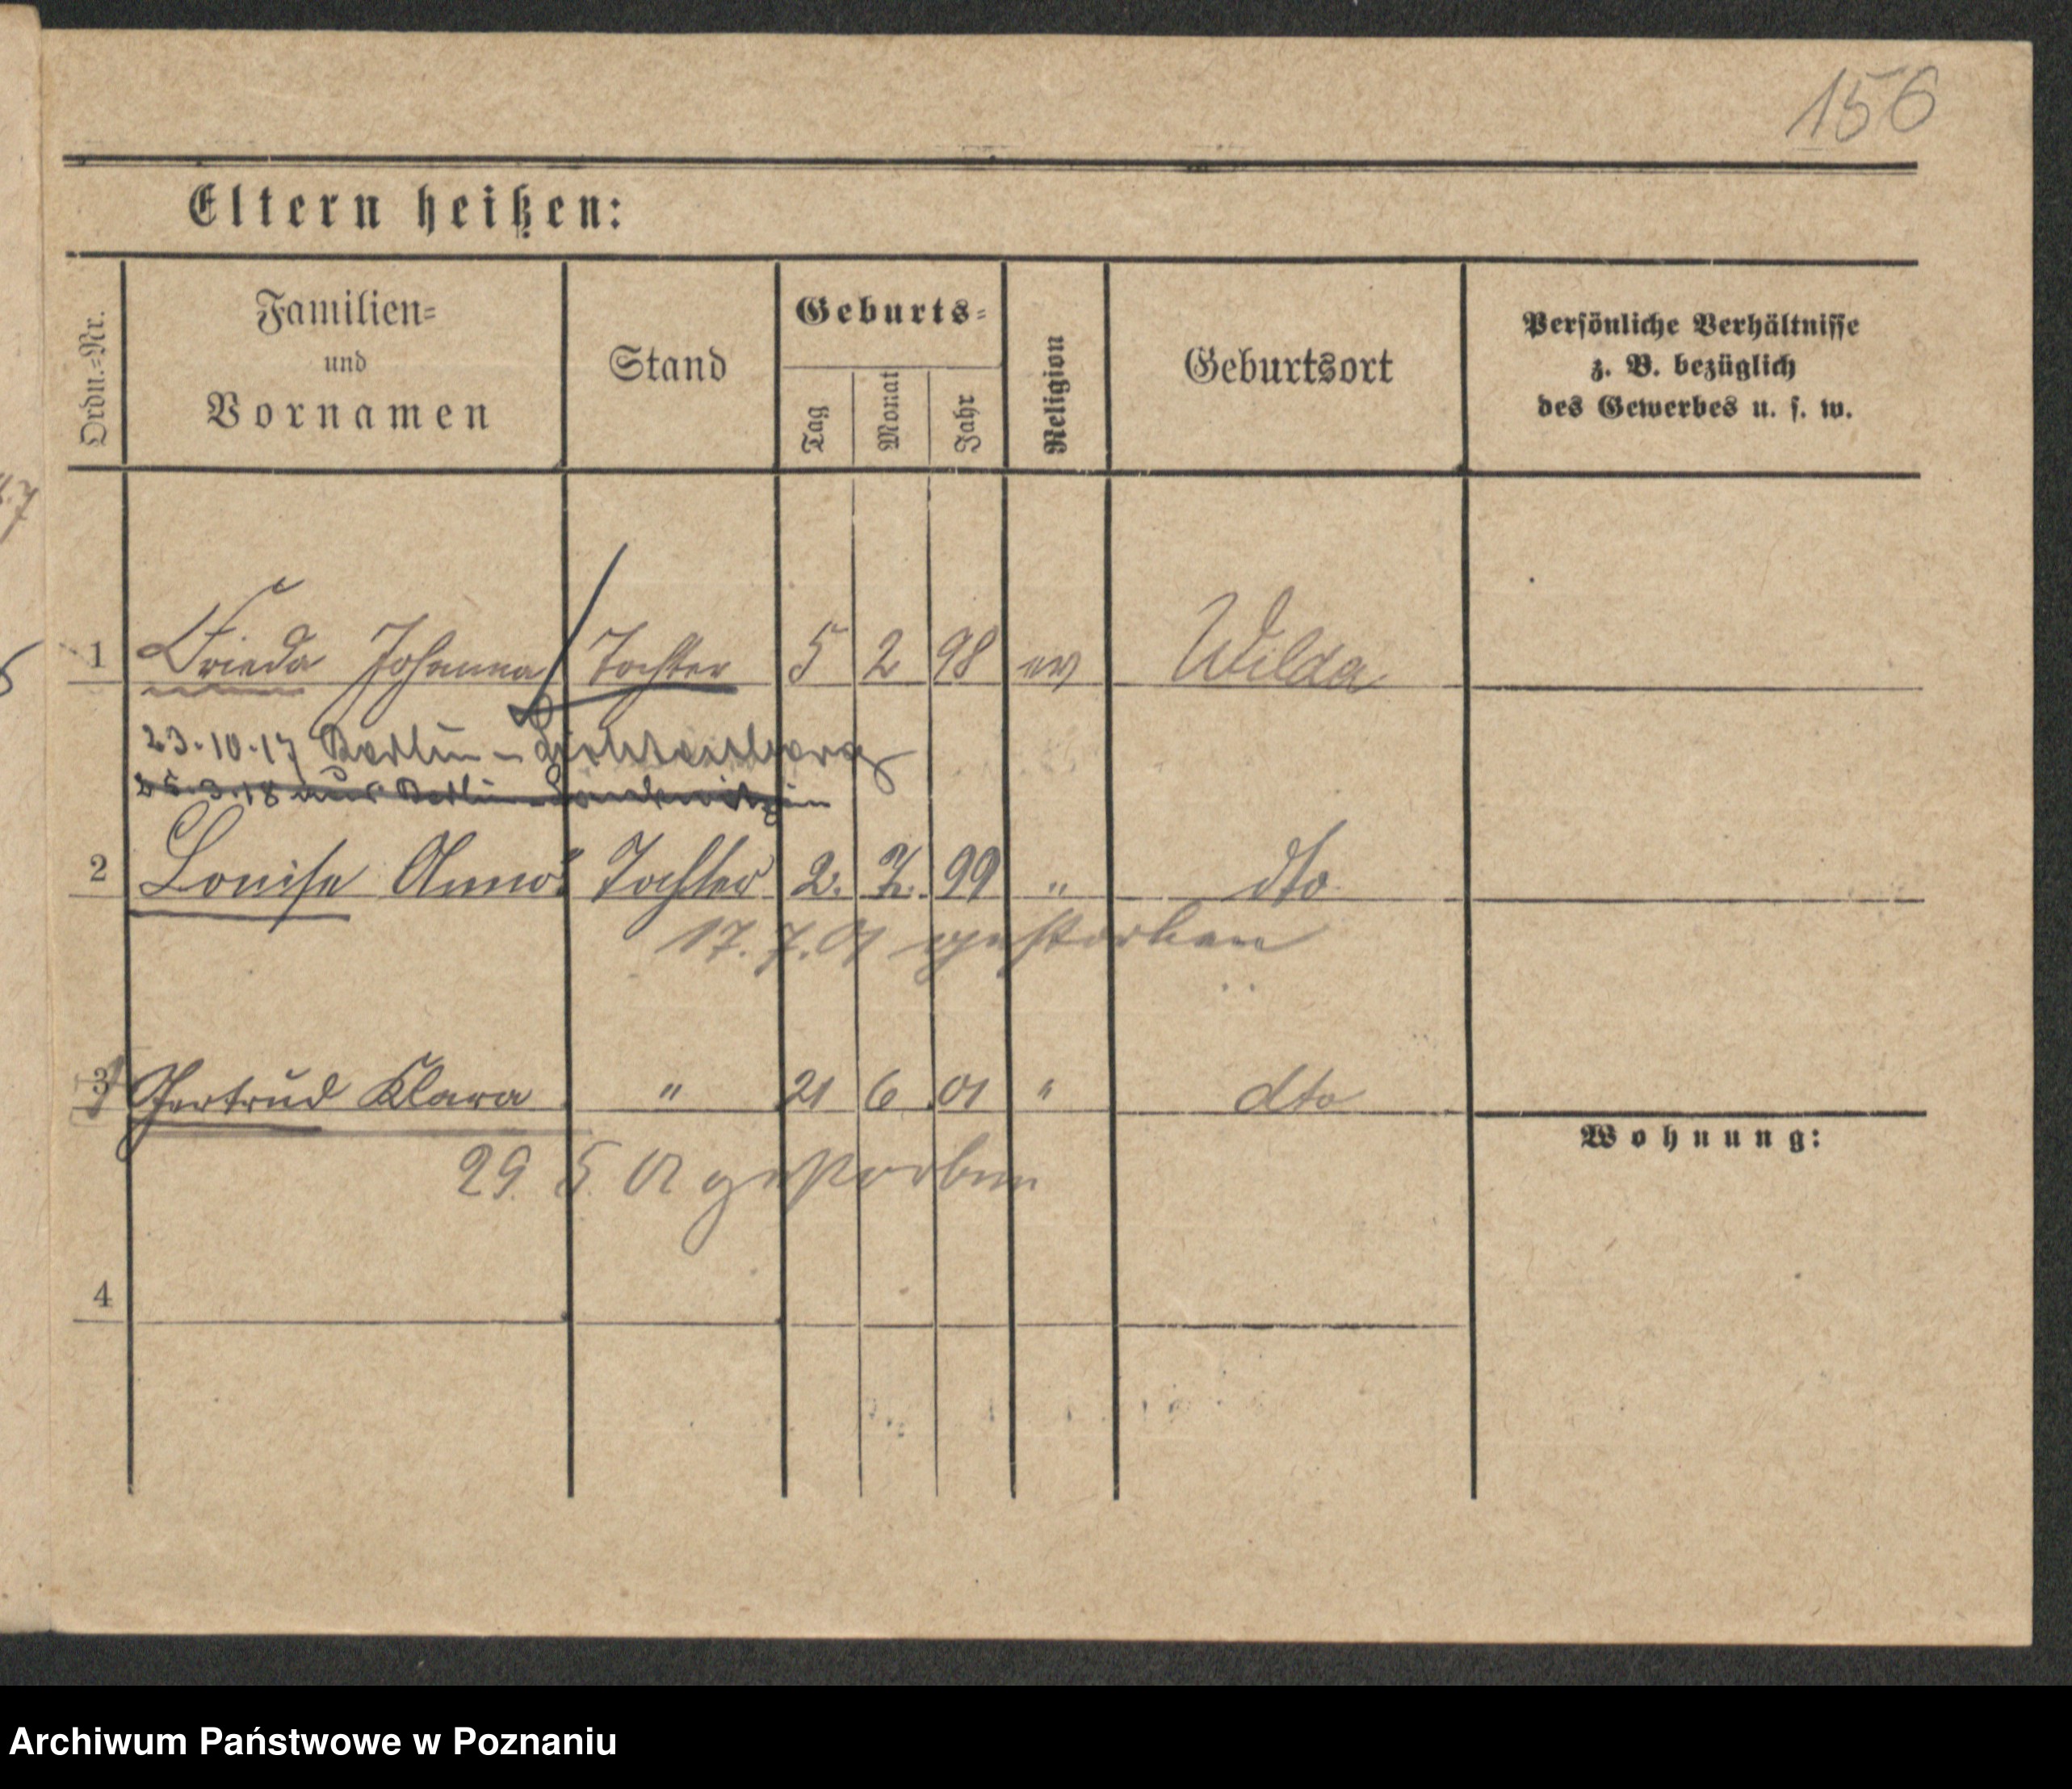 156
Eltern heißen:
Ordn.=Nr.
Familien=
und
Vornamen
Stand
Geburts=
Tag
Monat
Jahr
Religion
Geburtsort
Persönliche Verhältnisse
z. B. bezüglich
des Gewerbes u. s. w.
1 Frieda Johanna Tochter 5 2 98 ev Wilda
23.10.17 Berlin-Lichtenberg
25.3.18 aus Berlin-Lankwitz
2 Louise Anna Tochter 2. 99 " dto
17.7.01 gestorben
3 Gertrud Klara " 21 6 01 " dto
29. 5. 02 gestorben
Wohnung:
4
Archiwum Państwowe w Poznaniu